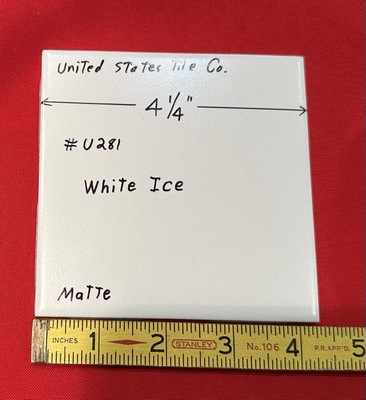 United States Tile Co.
4 1/4"
# U281
White Ice
Matte
INCHES 1 2 STANLEY 3 No. 106 4 P.R. APP'D. 5